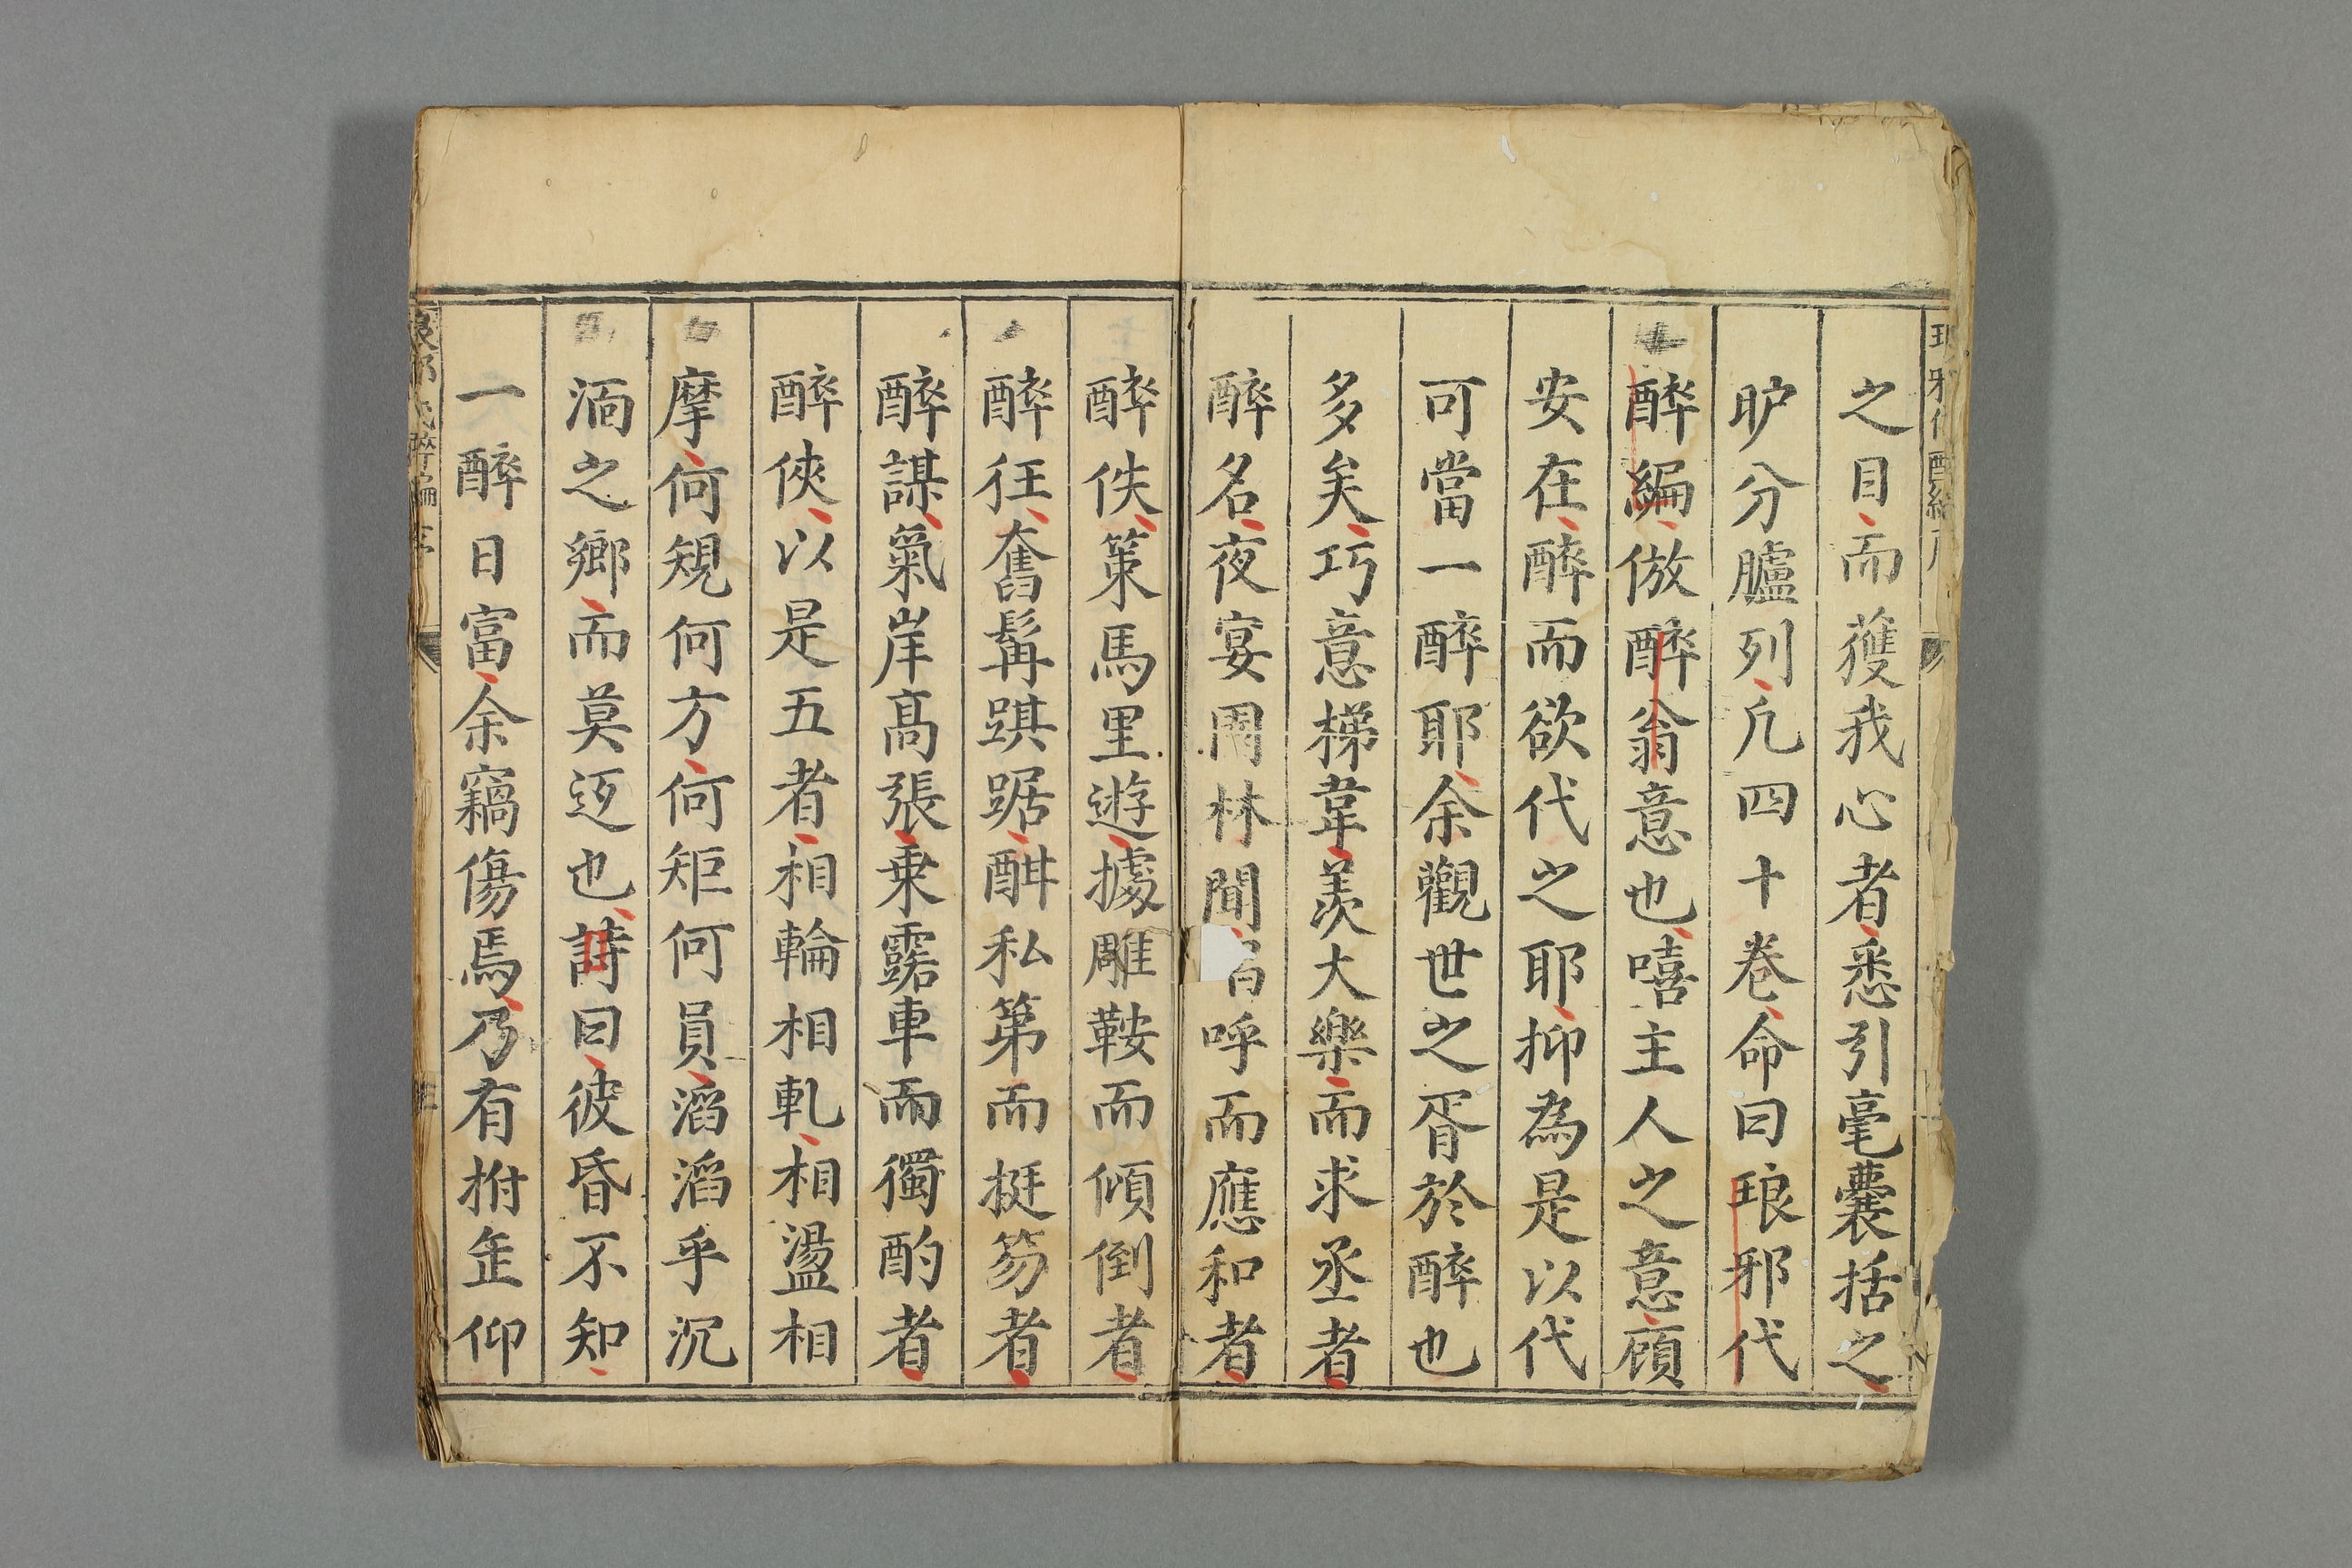 之目而獲我心者悉引毫囊括之
眆分臚列凢四十卷命曰琅邪代
醉編倣醉翁意也嘻主人之意顧
安在醉而欲代之耶抑為是以代
可當一醉耶余觀世之胥於醉也
多矣巧意梯韋羨大樂而求丞者
醉名夜宴園林聞 呼而應和者
醉佚策馬里遊據雕鞍而傾倒者
醉狂奮髯踑踞酣私第而挺笏者
醉謀氣岸高張乗露車而獨酌者
醉俠以是五者相輪相軋相盪相
摩何規何方何矩何員滔滔乎沉
湎之鄉而莫返也詩曰彼昏不知
一醉日富余竊傷焉乃有拊缶仰